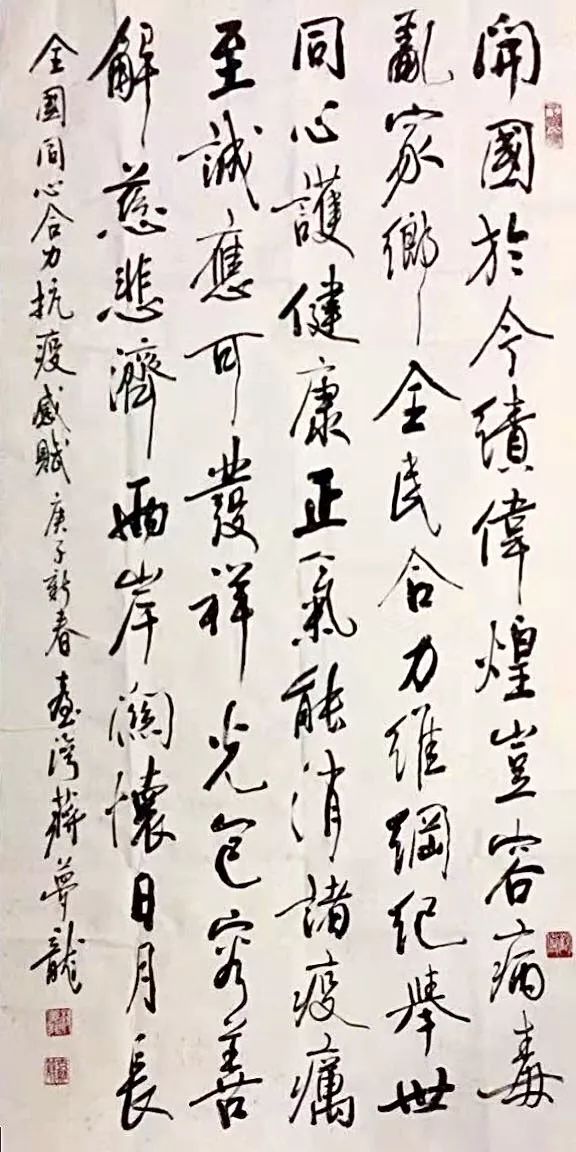 開國於今績偉煌豈容病毒
亂家鄉全民合力維綱紀舉世
同心護健康正氣能消諸疫癘
至誠應可發祥光包容善
解慈悲濟兩岸關懷日月長
全國同心合力抗疫感賦 庚子新春 臺灣蔣夢龍